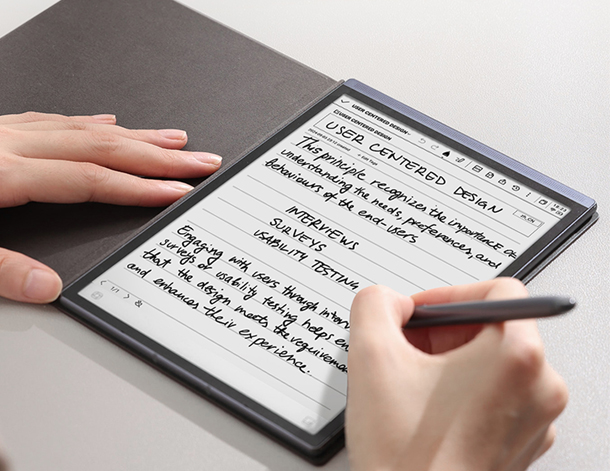 USER CENTERED DESIGN
USER CENTERED DESIGN
+ Add Tags
USER CENTERED DESIGN
This principle recognizes the importance
understanding the needs, preferences, and
Behaviours of the end-users
INTERVIEWS
SURVEYS
USABILITY TESTING
Engaging with users through
surveys or usability testing helps
that the design meets the
and enhances their experience.
1/1